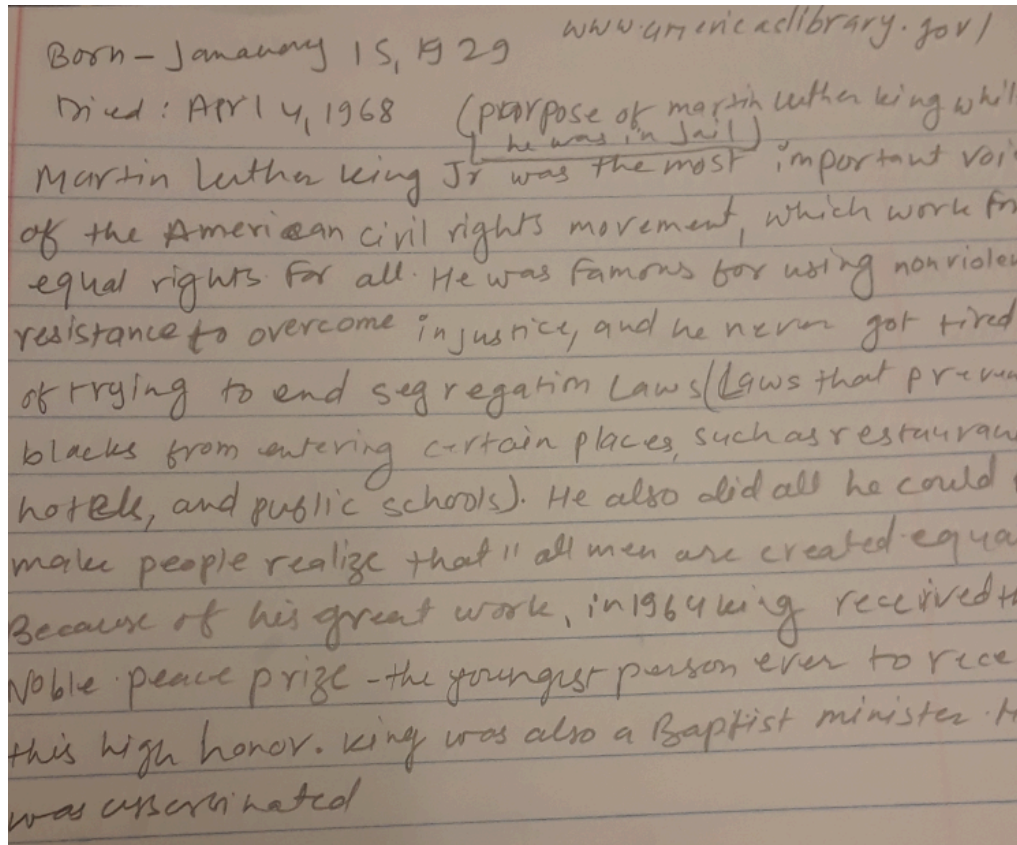 www.americaslibrary.gov/
Born - Janauary 15, 1929
Died : Aprl 4, 1968 (poorpose of martin luther king whil
he was in Jail)
Martin luther king Jr was the most important voi
of the American civil rights movement, which work for
equal rights for all. He was famous for using nonviolen
resistance to overcome injustice, and he never got tired
of trying to end segregation Laws (Laws that preven
blacks from entering certain places, such as restauran
hotels, and public schools). He also did all he could
make people realize that " all men are created equa
Because of his great work, in 1964 king received th
Noble peace prize - the youngest person ever to rece
this high honor. king was also a Baptist minister. H
was